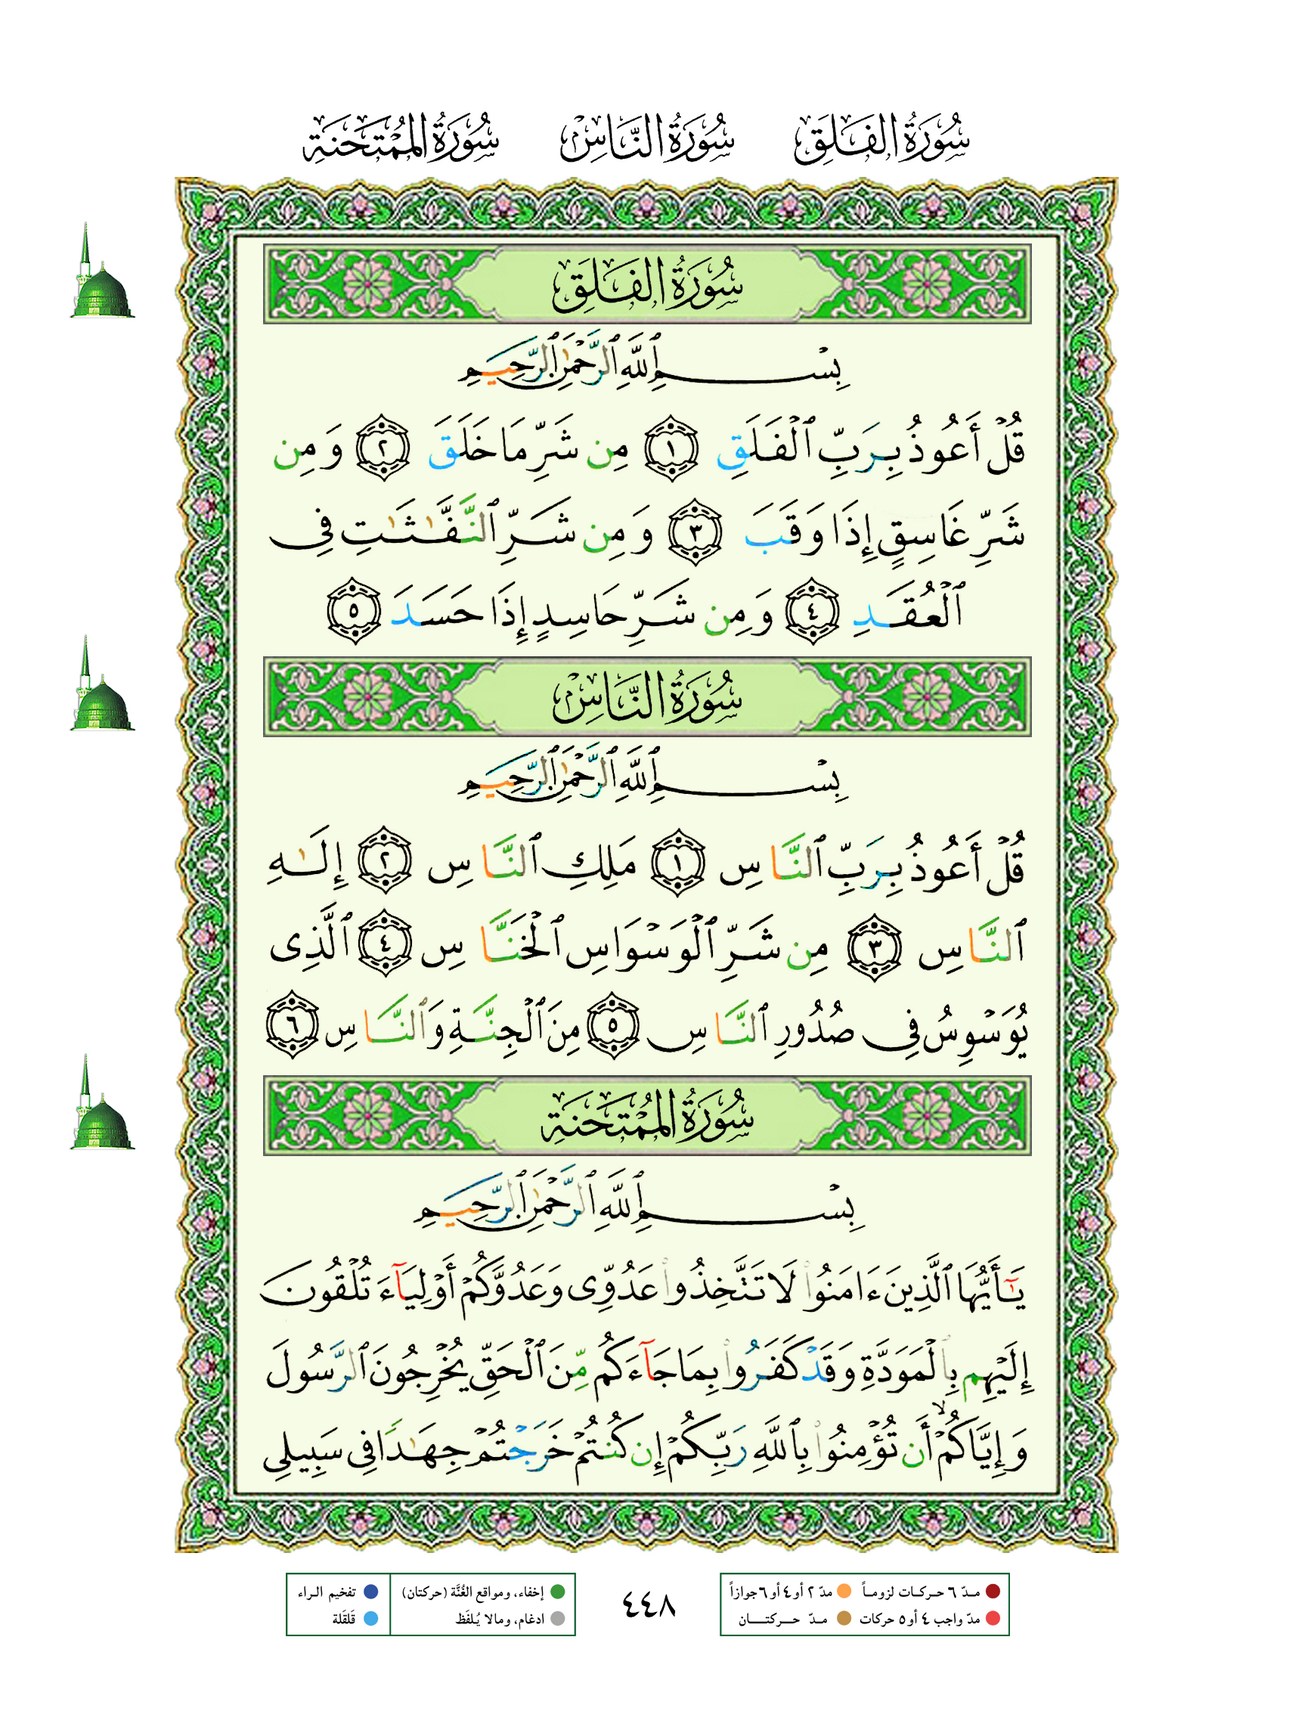 سُورَةُ الفَلَقِ سُورَةُ النَّاسِ سُورَةُ المُمْتَحَنَةِ
سُورَةُ الفَلَقِ
بِسْمِ ٱللَّهِ ٱلرَّحْمَٰنِ ٱلرَّحِيمِ
قُلْ أَعُوذُ بِرَبِّ ٱلْفَلَقِ ١ مِن شَرِّ مَا خَلَقَ ٢ وَمِن
شَرِّ غَاسِقٍ إِذَا وَقَبَ ٣ وَمِن شَرِّ ٱلنَّفَّٰثَٰتِ فِى
ٱلْعُقَدِ ٤ وَمِن شَرِّ حَاسِدٍ إِذَا حَسَدَ ٥
سُورَةُ النَّاسِ
بِسْمِ ٱللَّهِ ٱلرَّحْمَٰنِ ٱلرَّحِيمِ
قُلْ أَعُوذُ بِرَبِّ ٱلنَّاسِ ١ مَلِكِ ٱلنَّاسِ ٢ إِلَٰهِ
ٱلنَّاسِ ٣ مِن شَرِّ ٱلْوَسْوَاسِ ٱلْخَنَّاسِ ٤ ٱلَّذِى
يُوَسْوِسُ فِى صُدُورِ ٱلنَّاسِ ٥ مِنَ ٱلْجِنَّةِ وَٱلنَّاسِ ٦
سُورَةُ المُمْتَحَنَةِ
بِسْمِ ٱللَّهِ ٱلرَّحْمَٰنِ ٱلرَّحِيمِ
يَٰٓأَيُّهَا ٱلَّذِينَ ءَامَنُوا۟ لَا تَتَّخِذُوا۟ عَدُوِّى وَعَدُوَّكُمْ أَوْلِيَآءَ تُلْقُونَ
إِلَيْهِم بِٱلْمَوَدَّةِ وَقَدْ كَفَرُوا۟ بِمَا جَآءَكُم مِّنَ ٱلْحَقِّ يُخْرِجُونَ ٱلرَّسُولَ
وَإِيَّاكُمْ ۙ أَن تُؤْمِنُوا۟ بِٱللَّهِ رَبِّكُمْ إِن كُنتُمْ خَرَجْتُمْ جِهَٰدًا فِى سَبِيلِى
مدّ ٦ حركات لزوماً مدّ ٢ أو ٤ أو ٦ جوازاً
مدّ واجب ٤ أو ٥ حركات مدّ حركتان
٤٤٨
إخفاء، ومواقع الغُنَّة (حركتان) تفخيم الراء
ادغام، ومالا يُلفَظ قَلقَلة